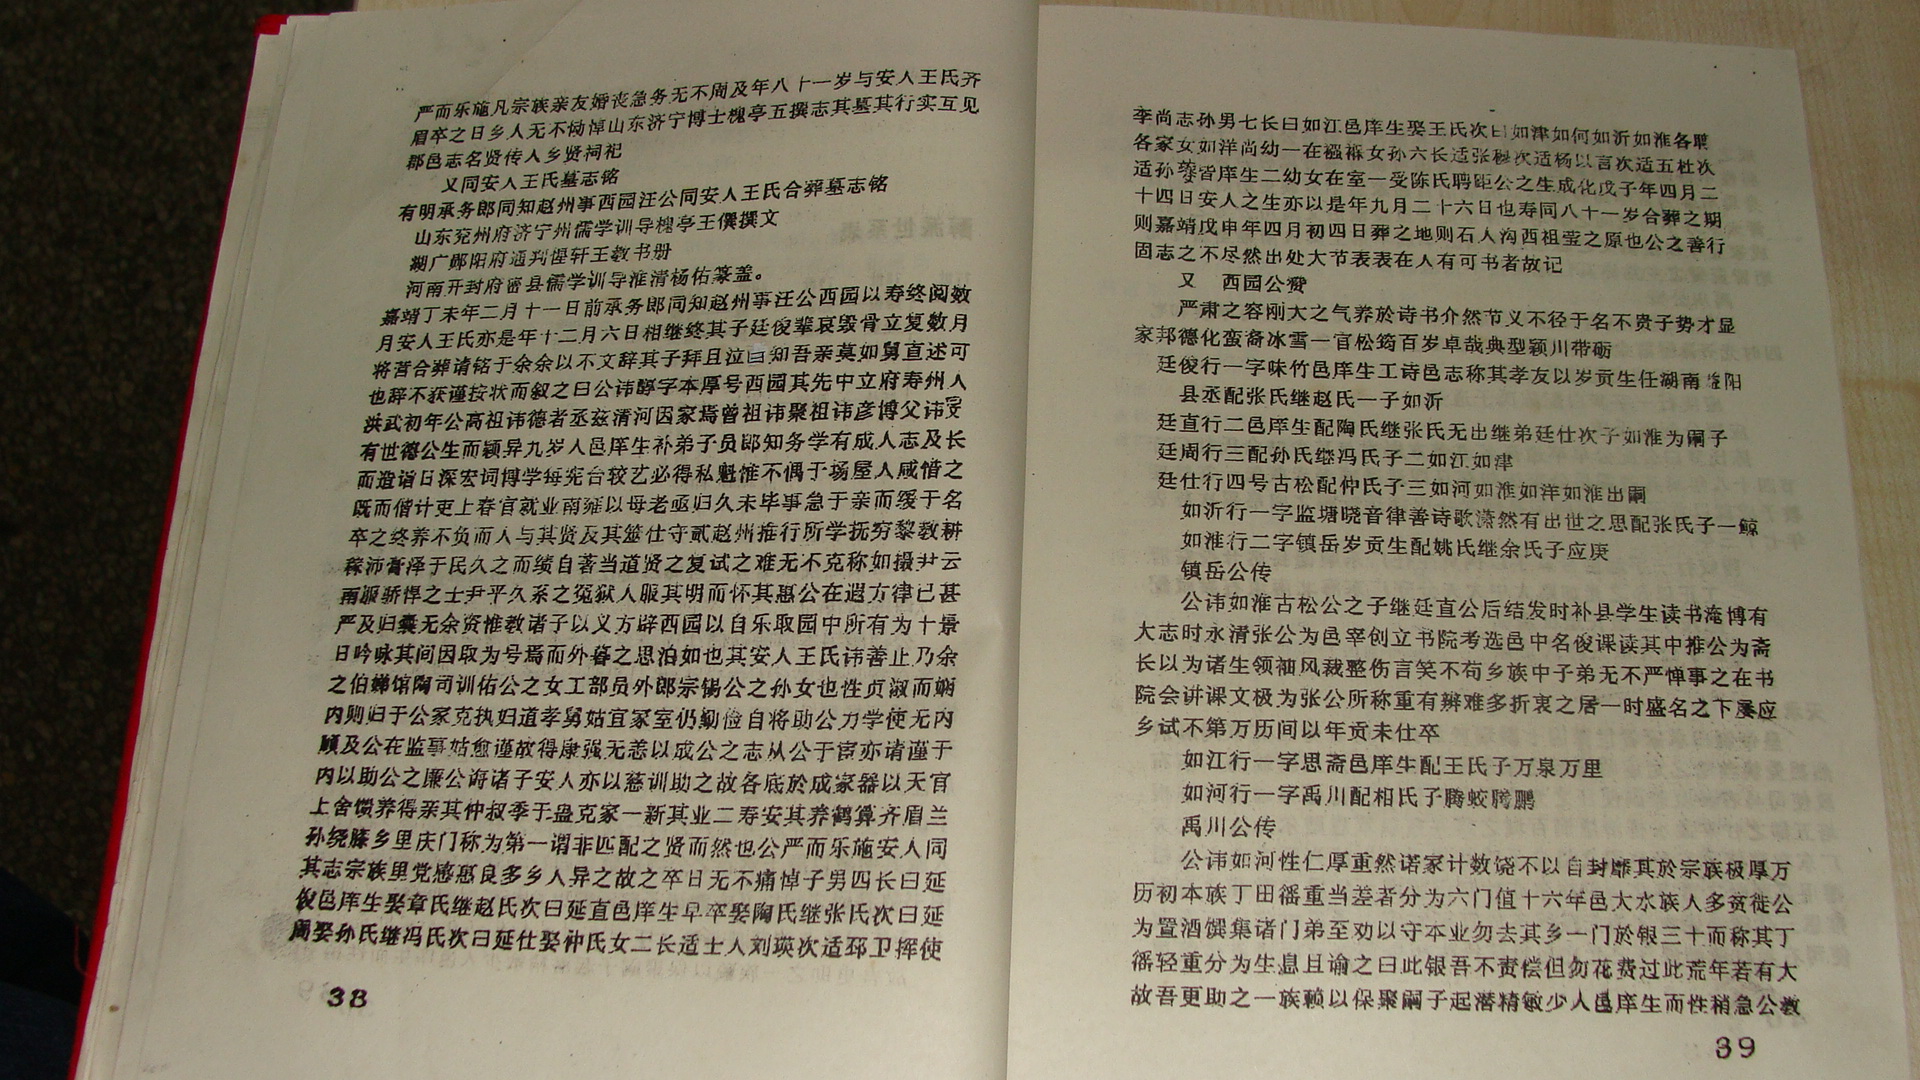 严而乐施凡宗族亲友婚丧急务无不周及年八十一岁与安人王氏齐
眉卒之日乡人无不恸悼山东济宁博士槐亭五撰志其墓其行实互见
郡邑志名贤传入乡贤祠祀
又同安人王氏墓志铭
有明承务郎同知赵州事西园汪公同安人王氏合葬墓志铭
山东兖州府济宁州儒学训导槐亭王僎撰文
湖广郧阳府通判惺轩王教书册
河南开封府密县儒学训导淮清杨佑篆盖。
嘉靖丁未年二月十一日前承务郎同知赵州事汪公西园以寿终阅数
月安人王氏亦是年十二月六日相继终其子廷俊辈哀毁骨立复数月
将营合葬请铭于余余以不文辞其子拜且泣曰知吾亲莫如舅直述可
也辞不获谨按状而叙之曰公讳醇字本厚号西园其先中立府寿州人
洪武初年公高祖讳德者丞兹清河因家焉曾祖讳聚祖讳彦博父讳
有世德公生而颖异九岁入邑庠生补弟子员郎知务学有成人志及长
而造诣日深宏词博学每宪台较艺必得私魁惟不偶于场屋人咸惜之
既而偕计吏上春官就业南雍以母老亟归久未毕事急于亲而缓于名
卒之终养不负而人与其贤及其筮仕守贰赵州推行所学抚穷黎教耕
稼沛膏泽于民久之而绩自著当道贤之复试之难无不克称如摄尹云
南服骄悍之士尹平久系之冤狱人服其明而怀其惠公在遐方律己甚
严及归囊无余资惟教诸子以义方辟西园以自乐取园中所有为十景
日吟咏其间因取为号焉而外暮之思泊如也其安人王氏讳善止乃余
之伯娣馆陶司训佑公之女工部员外郎宗锡公之孙女也性贞淑而娴
内则归于公家克执妇道孝舅姑宜家室仍勤俭自将助公力学使无内
顾及公在监事姑愈谨故得康强无恙以成公之志从公于宦亦请谨于
内以助公之廉公诲诸子安人亦以慈训助之故各底於成家器以天官
上舍馈养得亲其仲叔季于蛊克家一新其业二寿安其养鹤算齐眉兰
孙绕膝乡里庆门称为第一谓非匹配之贤而然也公严而乐施安人同
其志宗族里党感惠良多乡人异之故之卒日无不痛悼子男四长曰延
俊邑庠生娶章氏继赵氏次曰延直邑庠生早卒娶陶氏继张氏次曰延
周娶孙氏继冯氏次曰延仕娶仲氏女二长适士人刘瑛次适邳卫挥使
38
李尚志孙男七长曰如江邑庠生娶王氏次曰如津如何如沂如淮各聘
各家女如洋尚幼一在襁褓女孙六长适张稷次适杨以言次适五杜次
适孙蓥皆庠生二幼女在室一受陈氏聘距公之生成化戊子年四月二
十四日安人之生亦以是年九月二十六日也寿同八十一岁合葬之期
则嘉靖戊申年四月初四日葬之地则石人沟西祖茔之原也公之善行
固志之不尽然出处大节表表在人有可书者故记
又 西园公赞
严肃之容刚大之气养於诗书介然节义不径于名不贵子势才显
家邦德化蛮裔冰雪一官松筠百岁卓哉典型颖川带砺
廷俊行一字味竹邑庠生工诗邑志称其孝友以岁贡生任湖南阳
县丞配张氏继赵氏一子如沂
廷直行二邑庠生配陶氏继张氏无出继弟廷仕次子如淮为嗣子
廷周行三配孙氏继冯氏子二如江如津
廷仕行四号古松配仲氏子三如河如淮如洋如淮出嗣
如沂行一字监塘晓音律善诗歌潇然有出世之思配张氏子一鲸
如淮行二字镇岳岁贡生配姚氏继余氏子应庚
镇岳公传
公讳如淮古松公之子继廷直公后结发时补县学生读书淹博有
大志时永清张公为邑宰创立书院考选邑中名俊课读其中推公为斋
长以为诸生领袖风裁整伤言笑不苟乡族中子弟无不严惮事之在书
院会讲课文极为张公所称重有辨难多折衷之居一时盛名之下屡应
乡试不第万历间以年贡未仕卒
如江行一字思斋邑庠生配王氏子万泉万里
如河行一字禹川配相氏子腾蛟腾鹏
禹川公传
公讳如河性仁厚重然诺家计数饶不以自封靡其於宗族极厚万
历初本族丁田徭重当差者分为六门值十六年邑大水族人多贫徙公
为置酒馔集诸门弟至劝以守本业勿去其乡一门於银三十而称其丁
徭轻重分为生息且谕之曰此银吾不责偿但勿花费过此荒年若有大
故吾更助之一族赖以保聚嗣子起潜精敏少人邑庠生而性稍急公教
39